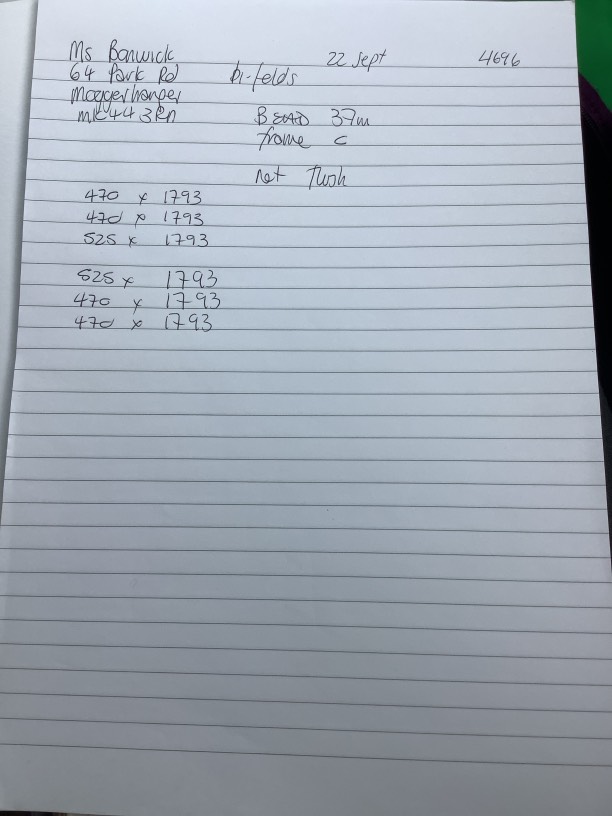 Ms Banwick 22 Sept 4696
64 Park Rd Bi-folds
Moggerhanger
MK44 3RN BEAD 37m
frame C
net
470 x 1793
470 x 1793
525 x 1793
525 x 1793
470 x 1793
470 x 1793